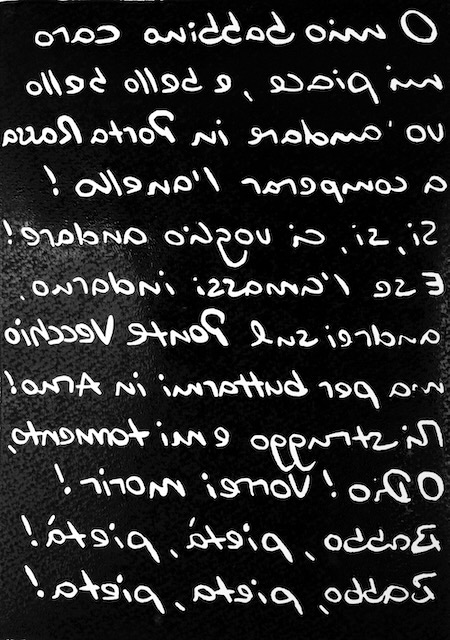 O mio babbino caro
mi piace, e bello bello
vo'andare in Porta Rossa
a comperar l'anello!
Si, si, ci voglio andare!
E se l'amassi indarno,
andrei sul Ponte Vecchio
ma per buttarmi in Arno!
Mi struggo e mi tormento,
O Dio! Vorrei morir!
Babbo, pietá, pietá!
Babbo, pieta, pieta!